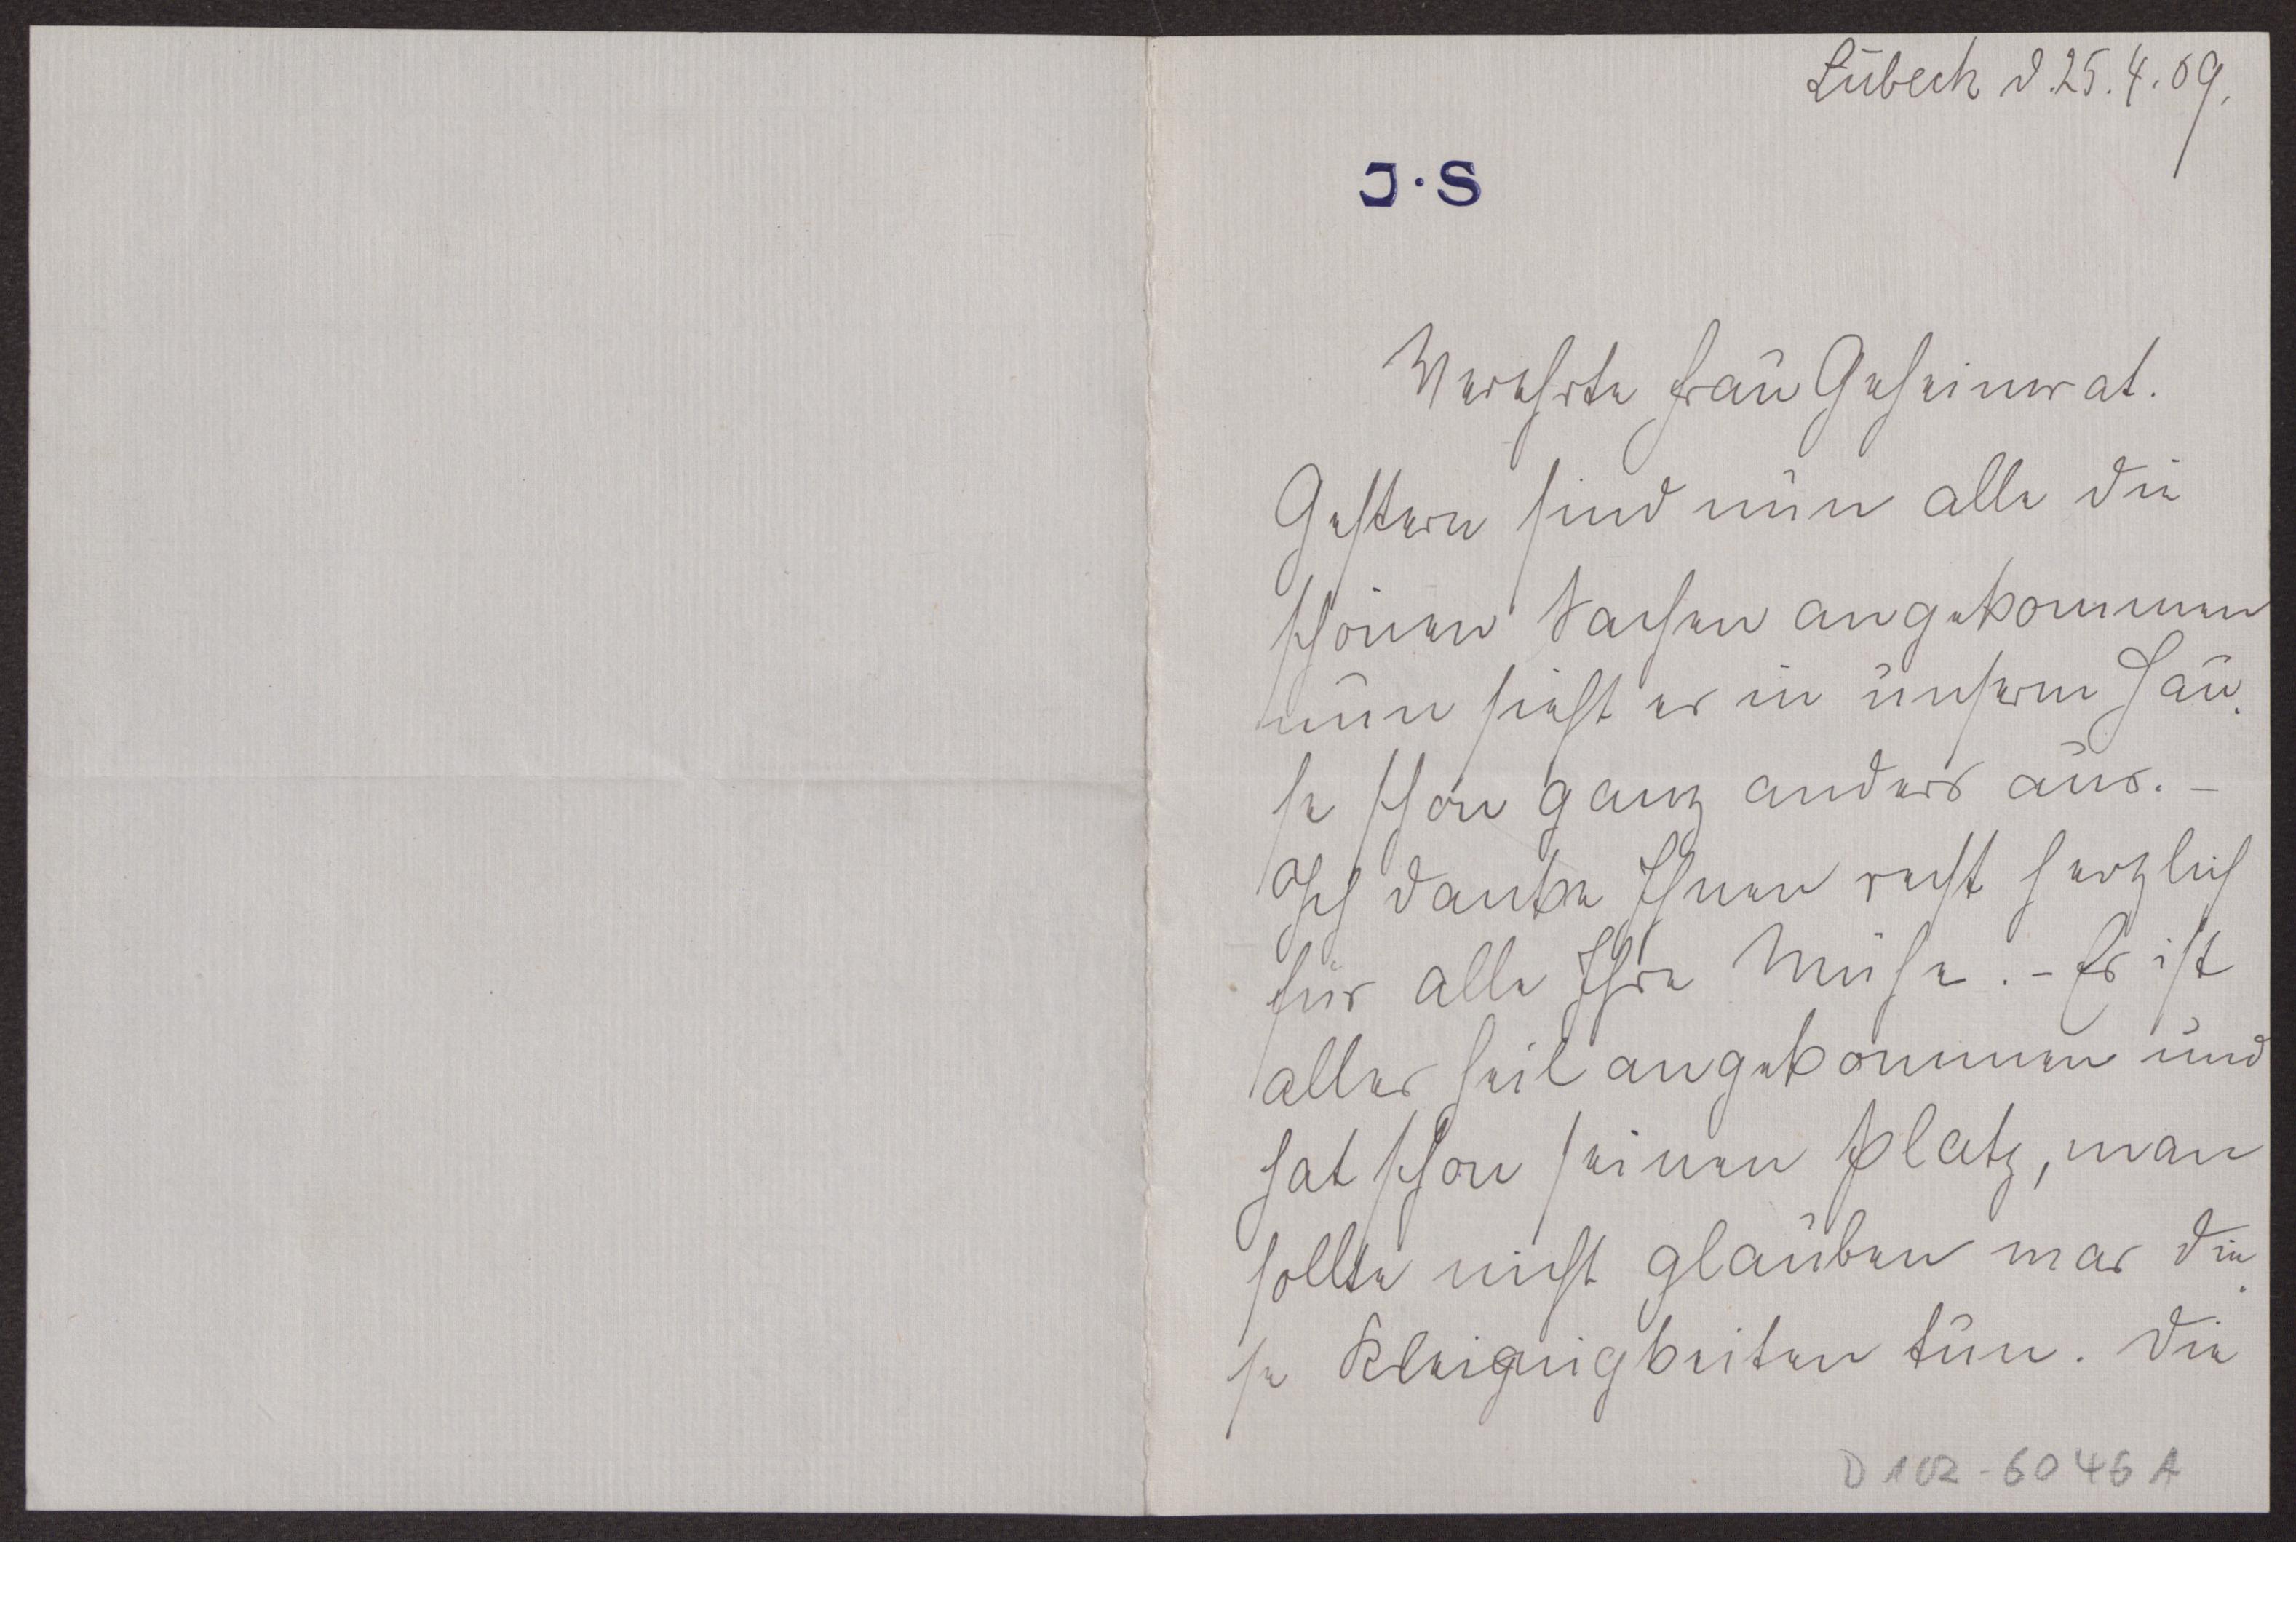 Lübeck d. 25.4.09.
J·S
Verehrte Frau Geheimrat.
Gestern sind nun alle die
schönen Sachen angekommen
nun sieht es in unserm Hau-
se schon ganz anders aus. –
Ich danke Ihnen recht herzlich
für alle Ihre Mühe. – Es ist
alles heil angekommen und
hat schon seinen Platz, man
sollte nicht glauben was die-
se Kleinigkeiten tun. Die
D 102-6046 A